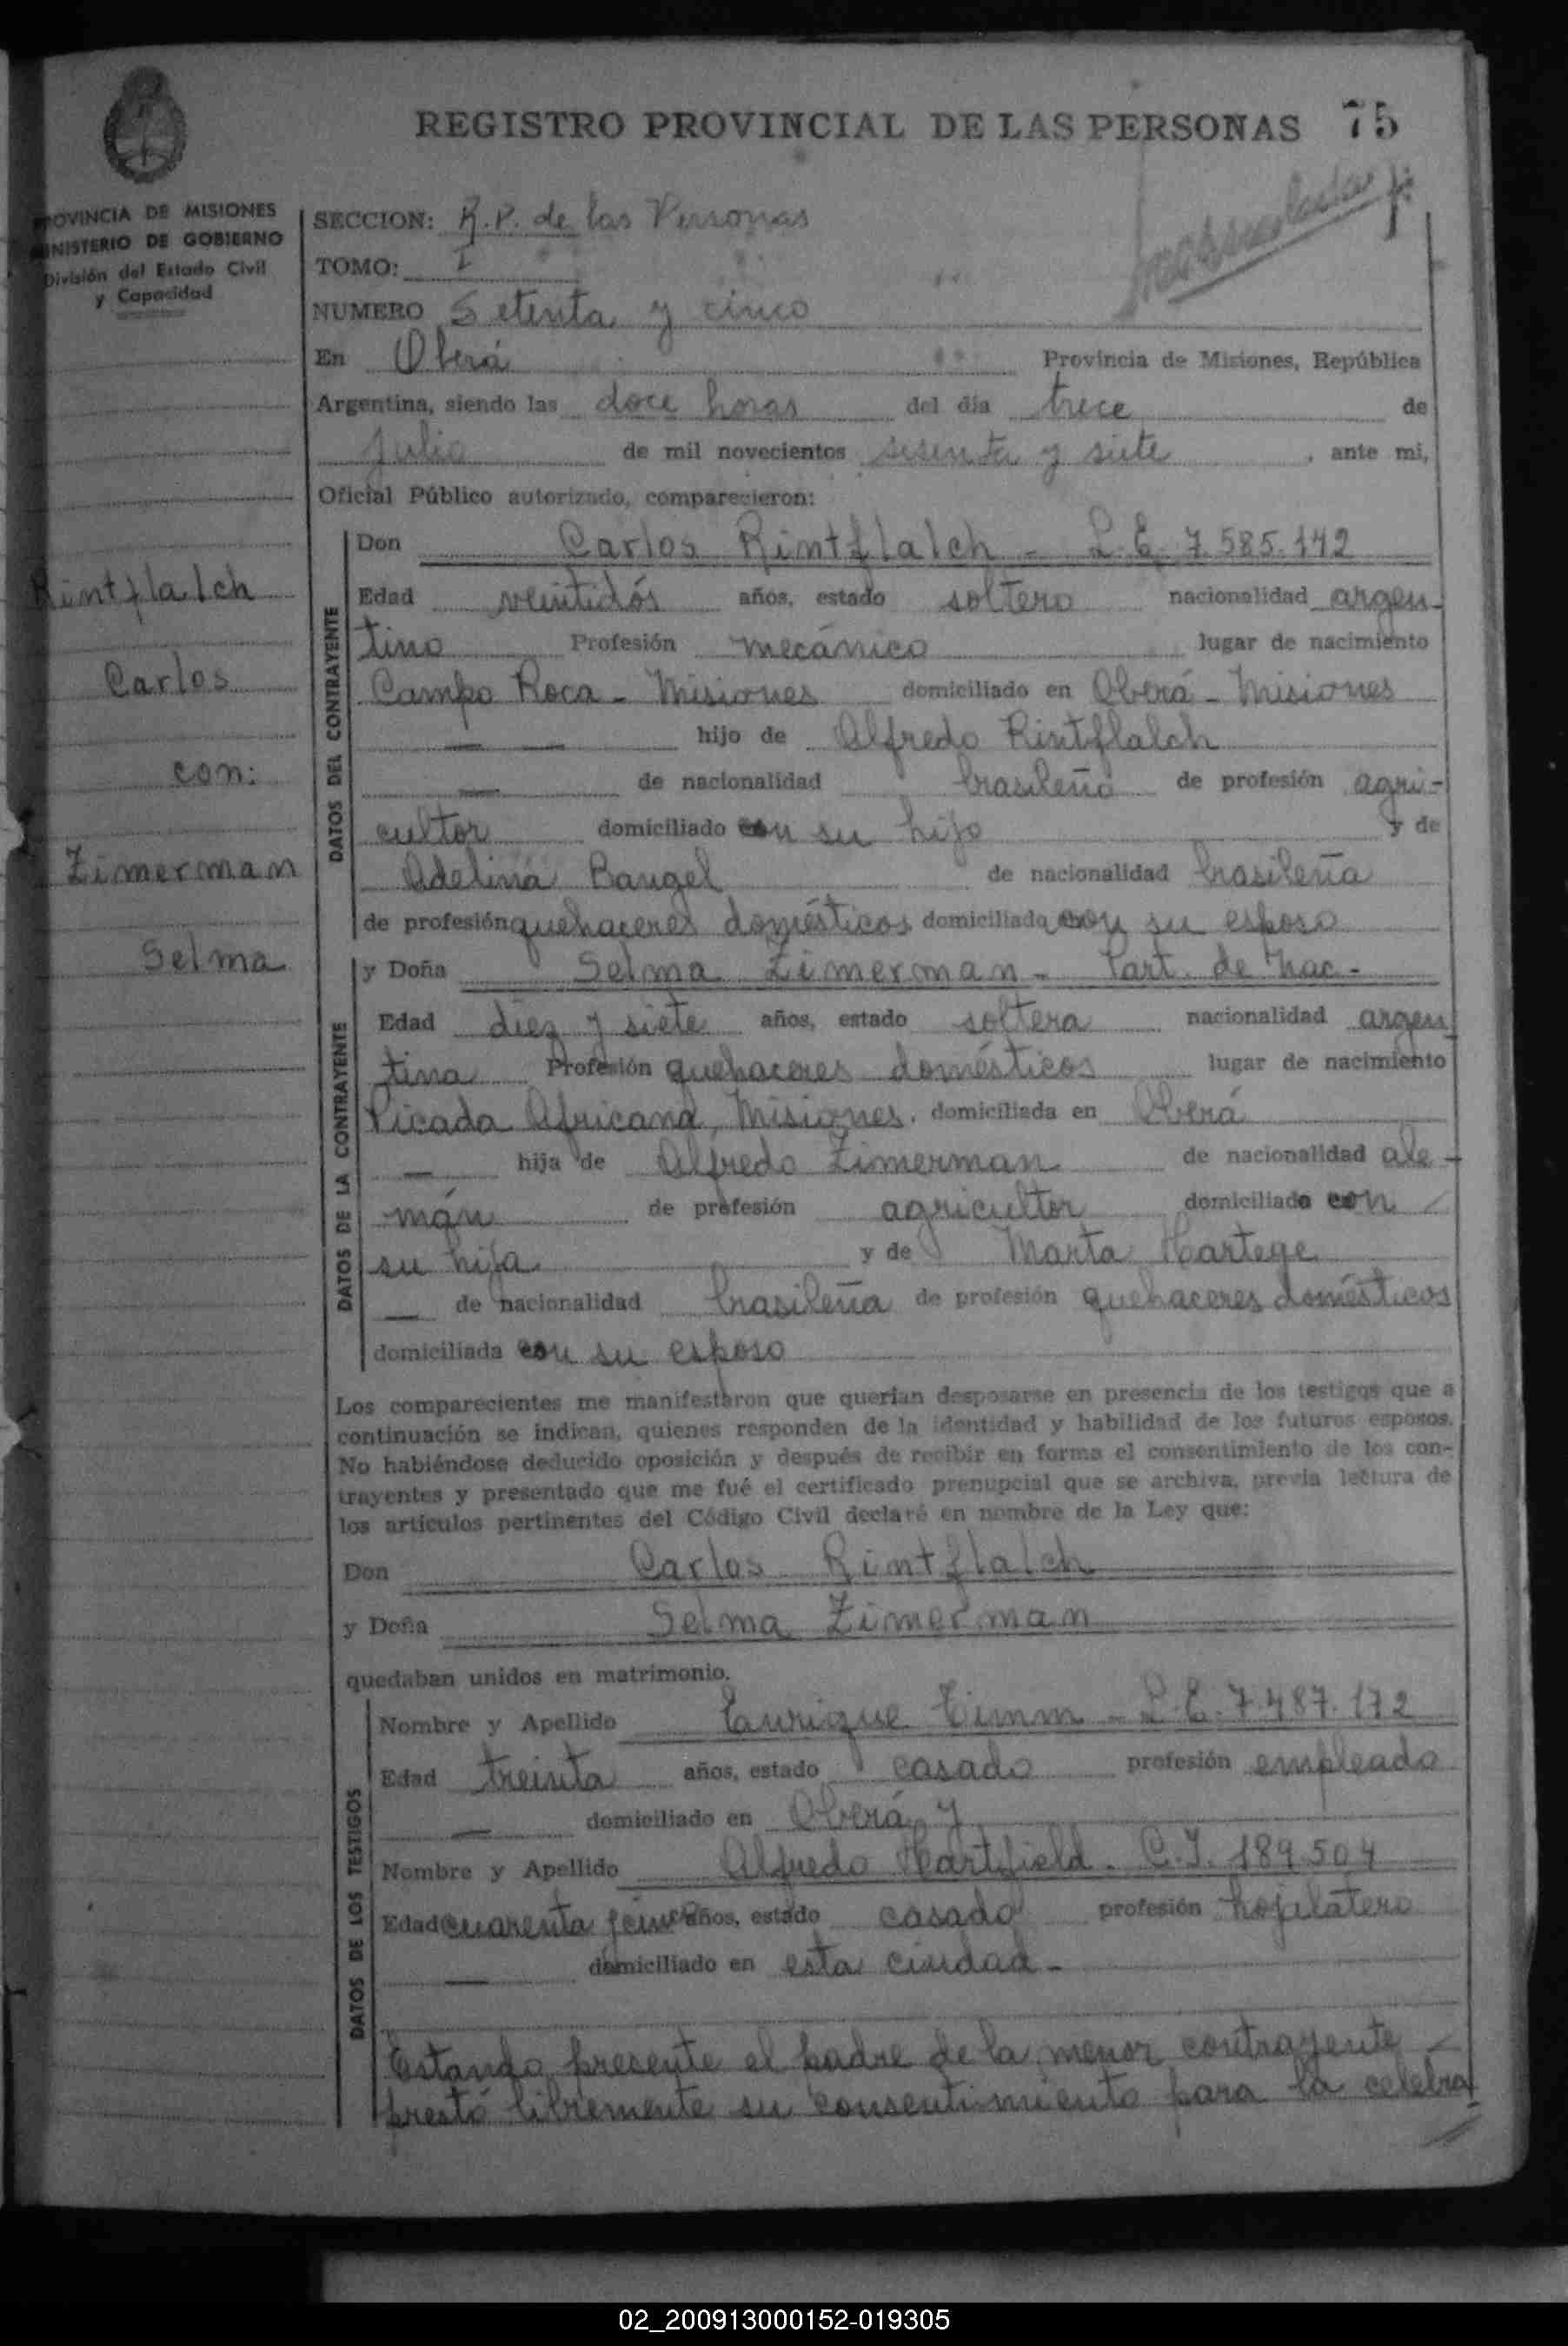 REGISTRO PROVINCIAL DE LAS PERSONAS 75
PROVINCIA DE MISIONES
MINISTERIO DE GOBIERNO
División del Estado Civil
y Capacidad
SECCION: R.P. de las Personas
TOMO: I
NUMERO Setenta y cinco
En Oberá Provincia de Misiones, República
Argentina, siendo las doce horas del día trece de
julio de mil novecientos sesenta y siete, ante mi,
Oficial Público autorizado, comparecieron:
Rintflalch
Carlos
con:
Zimerman
Selma
DATOS DEL CONTRAYENTE
Don Carlos Rintflalch - L.E. 7.585.142
Edad veintidós años, estado soltero nacionalidad argen-
tino Profesión mecánico lugar de nacimiento
Campo Roca - Misiones domiciliado en Oberá - Misiones
— — hijo de Alfredo Rintflalch
— de nacionalidad brasileño de profesión agri-
cultor domiciliado con su hijo y de
Adelina Baugel de nacionalidad brasileña
de profesión quehaceres domésticos domiciliada con su esposo
DATOS DE LA CONTRAYENTE
y Doña Selma Zimerman - Part. de Nac -
Edad diez y siete años, estado soltera nacionalidad argen
tina Profesión quehaceres domésticos lugar de nacimiento
Picada Africana, Misiones. domiciliada en Oberá
— hija de Alfredo Zimerman de nacionalidad ale-
mán de profesión agricultor domiciliado con
su hija y de Marta Hartege
— de nacionalidad brasileña de profesión quehaceres domésticos
domiciliada con su esposo
Los comparecientes me manifestaron que querían desposarse en presencia de los testigos que a
continuación se indican, quienes responden de la identidad y habilidad de los futuros esposos.
No habiéndose deducido oposición y después de recibir en forma el consentimiento de los con-
trayentes y presentado que me fué el certificado prenupcial que se archiva, previa lectura de
los artículos pertinentes del Código Civil declaré en nombre de la Ley que:
Don Carlos Rintflalch
y Doña Selma Zimerman
quedaban unidos en matrimonio.
DATOS DE LOS TESTIGOS
Nombre y Apellido Enrique Timm - L.E. 7.487.172
Edad treinta años, estado casado profesión empleado
— domiciliado en Oberá y
Nombre y Apellido Alfredo Hartfield. C.I. 189.504
Edad cuarenta y cinco años, estado casado profesión hojalatero
— domiciliado en esta ciudad -
Estando presente el padre de la menor contrayente
prestó libremente su consentimiento para la celebra
02_200913000152-019305